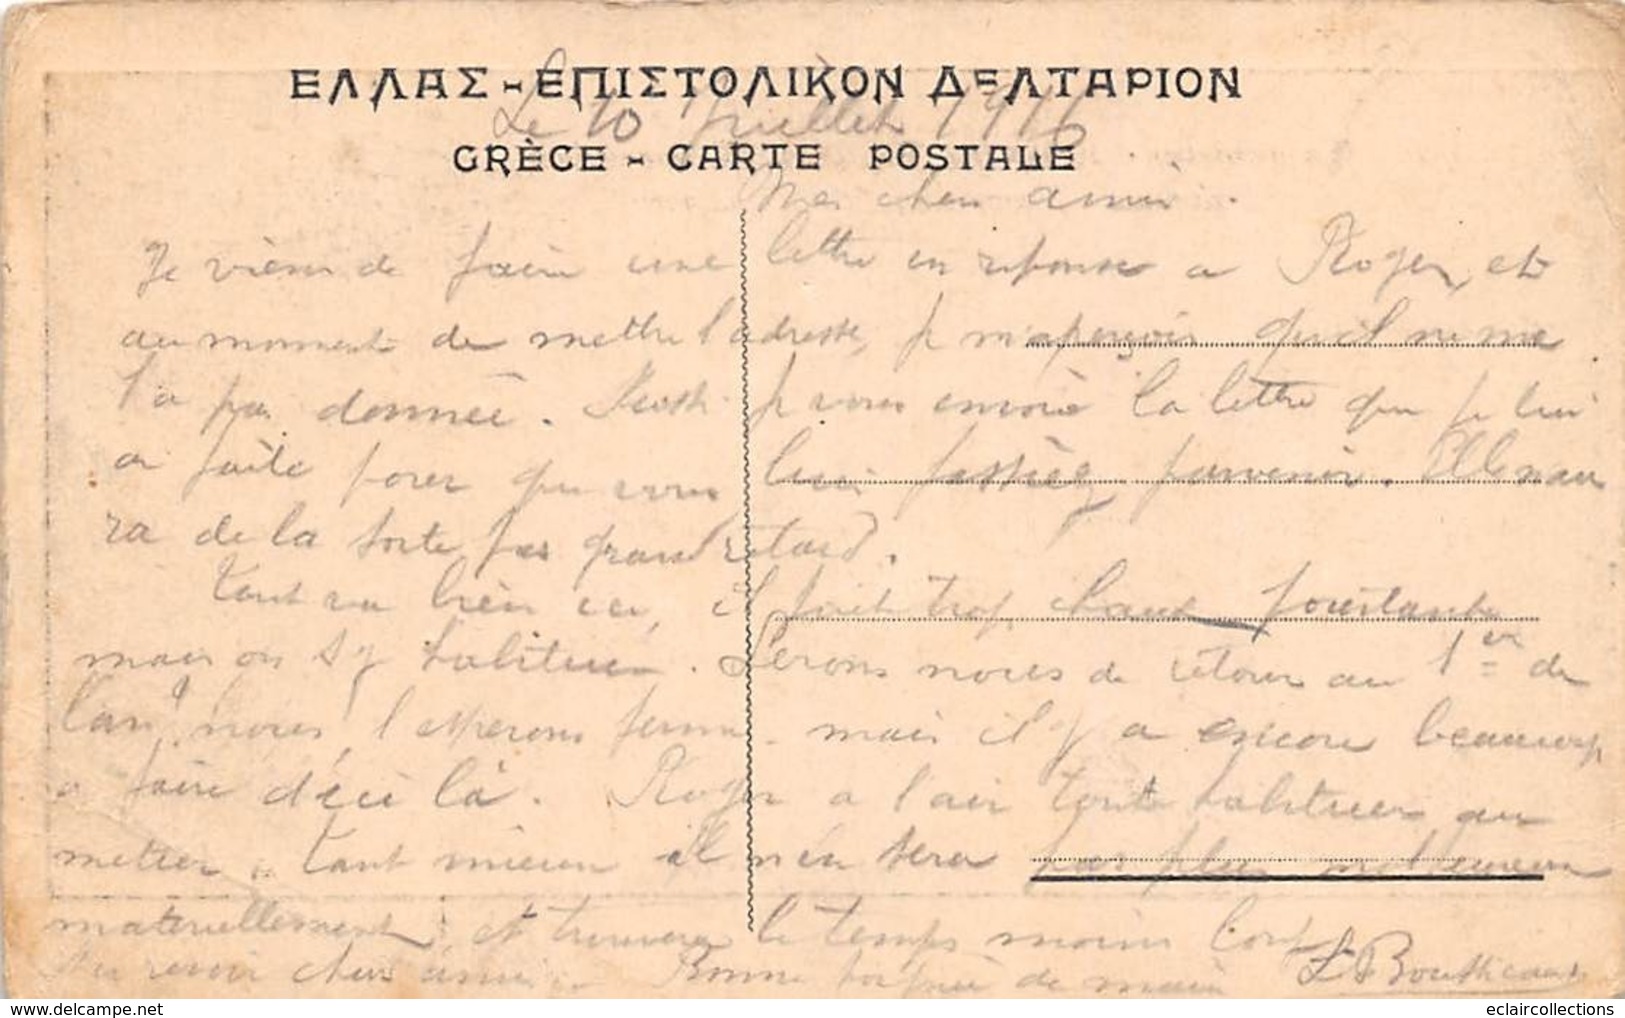 ΕΛΛΑΣ - ΕΠΙΣΤΟΛΙΚΟΝ ΔΕΛΤΑΡΙΟΝ
Le 10 Juillet 1916
GRÈCE - CARTE POSTALE
Mes chers amis.
Je viens de faire une lettre en réponse a Roger, et
au moment de mettre l'adresse, je m'aperçois qu'il ne me
l'a pas donnée. je vous envoie la lettre que je lui
ai faite pour que vous lui fassiez parvenir. Elle n'au
ra de la sorte pas grand retard.
Tout va bien ici, il fait trop chaud pourtant
mais on s'y habitue. Serons nous de retour au 1er de
l'an? nous l'espérons ferme. mais il y a encore beaucoup
a faire d'ici là. Roger a l'air tout habituer au
metier. tant mieux il n'en sera pas plus malheureux
materiellement, et trouvera le temps moins long.
Au revoir chers amis. Bonne poignée de main
eclaircollections